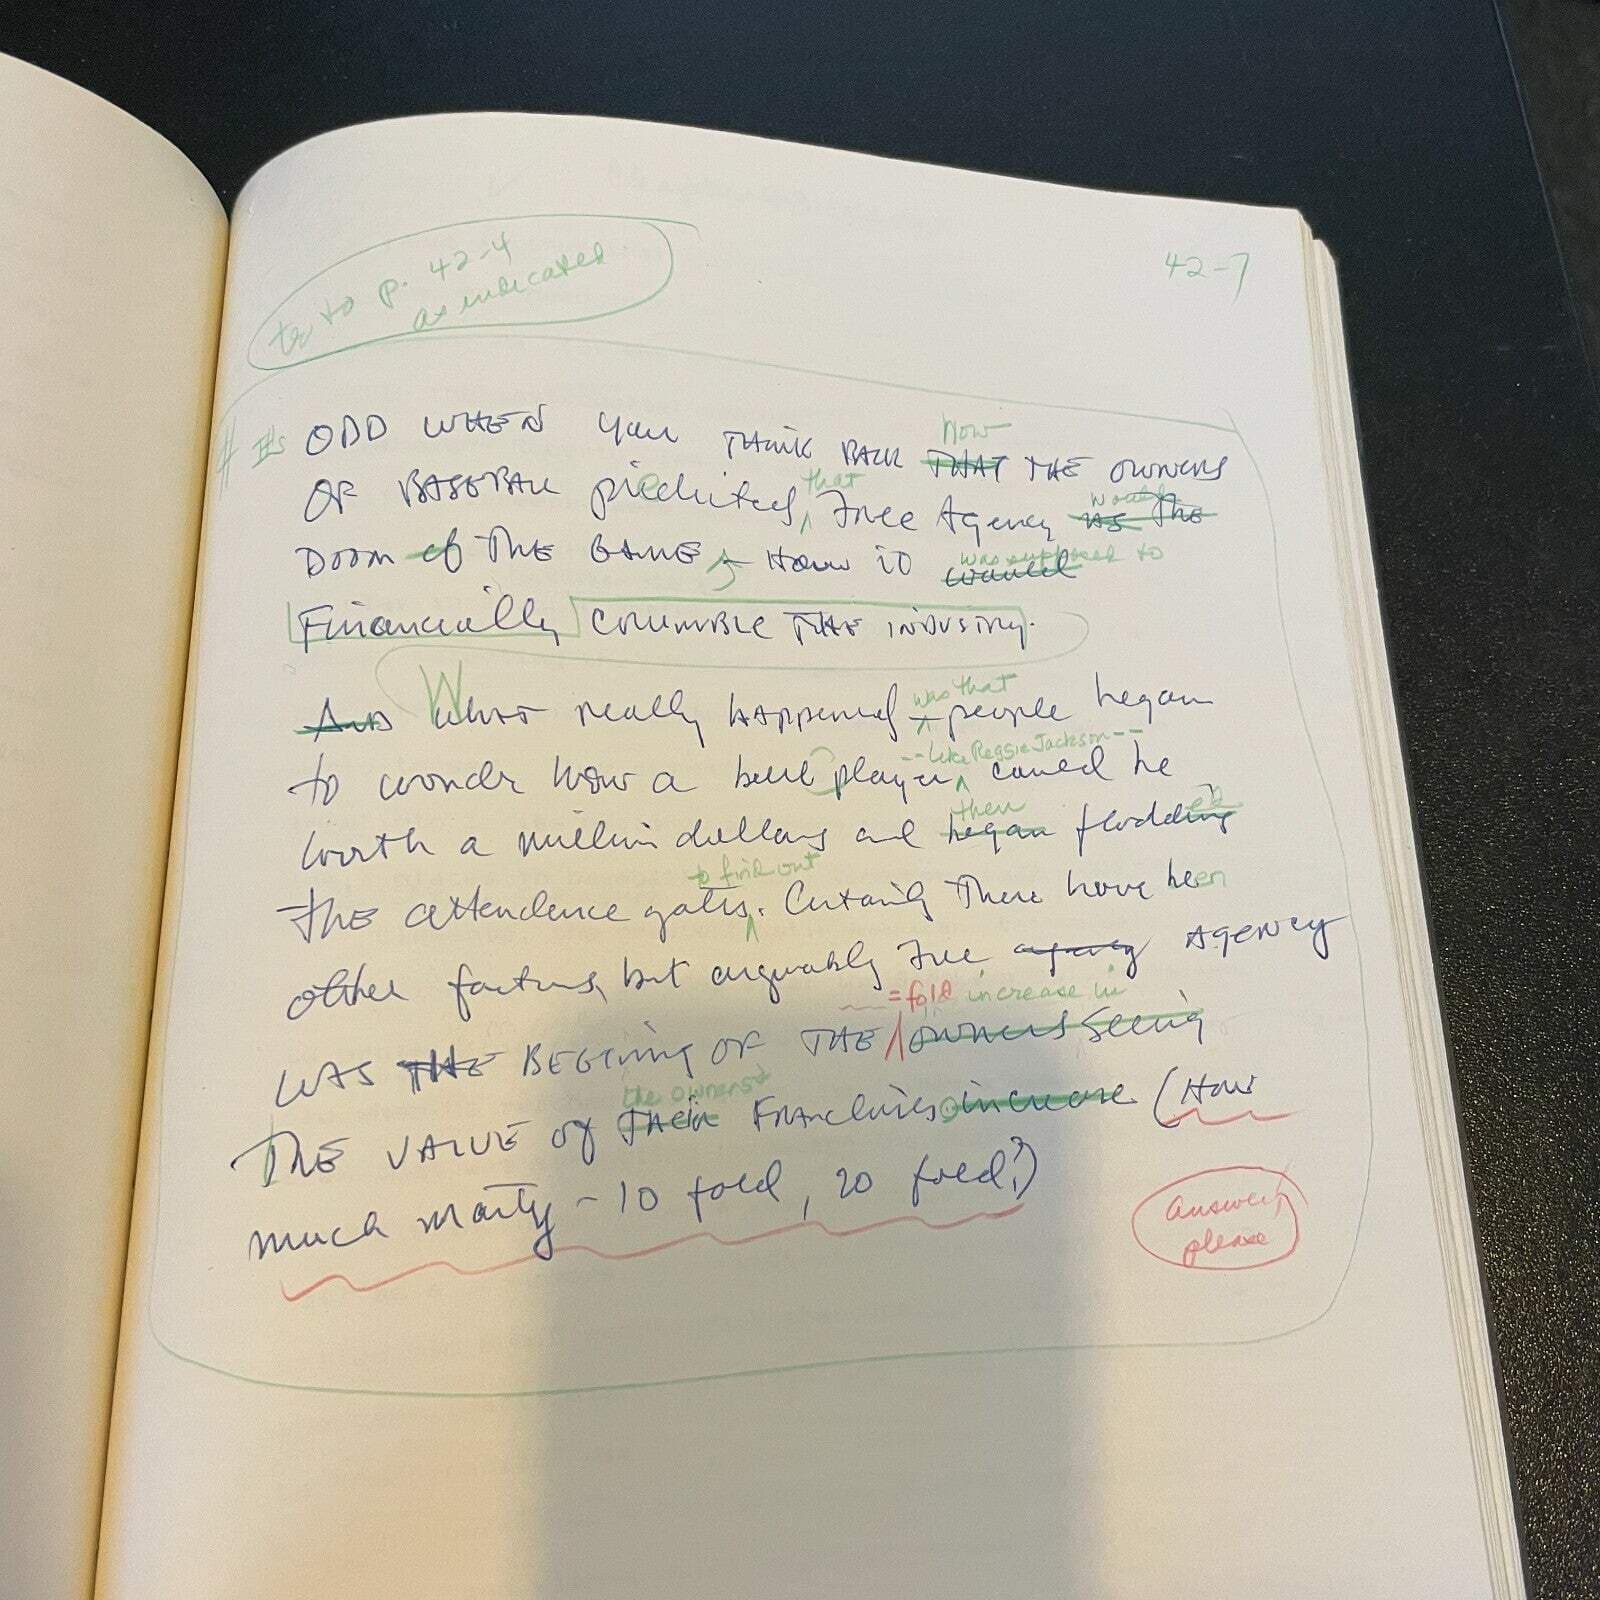 tr to p. 42-4
as indicated
42-7
# It's ODD WHEN you THINK BACK THAT how THE OWNERS
OF BASEBALL predicted, that Free Agency would as the
DOOM of THE GAME - How it was supposed to would
Financially CRUMBLE THE INDUSTRY.
AND What really happened was that people began
to wonder how a ball player --like Reggie Jackson-- could be
worth a million dollars and then began flooding ed
THE attendence gates to find out. Certainly There have been
other factors, but arguably Free agency AGENCY
WAS THE BEGINING OF THE =fold increase in owners seeing
THE VALUE of the owners' THEIR Franchises increase (How
much Marty - 10 fold, 20 fold?)
answer,
please